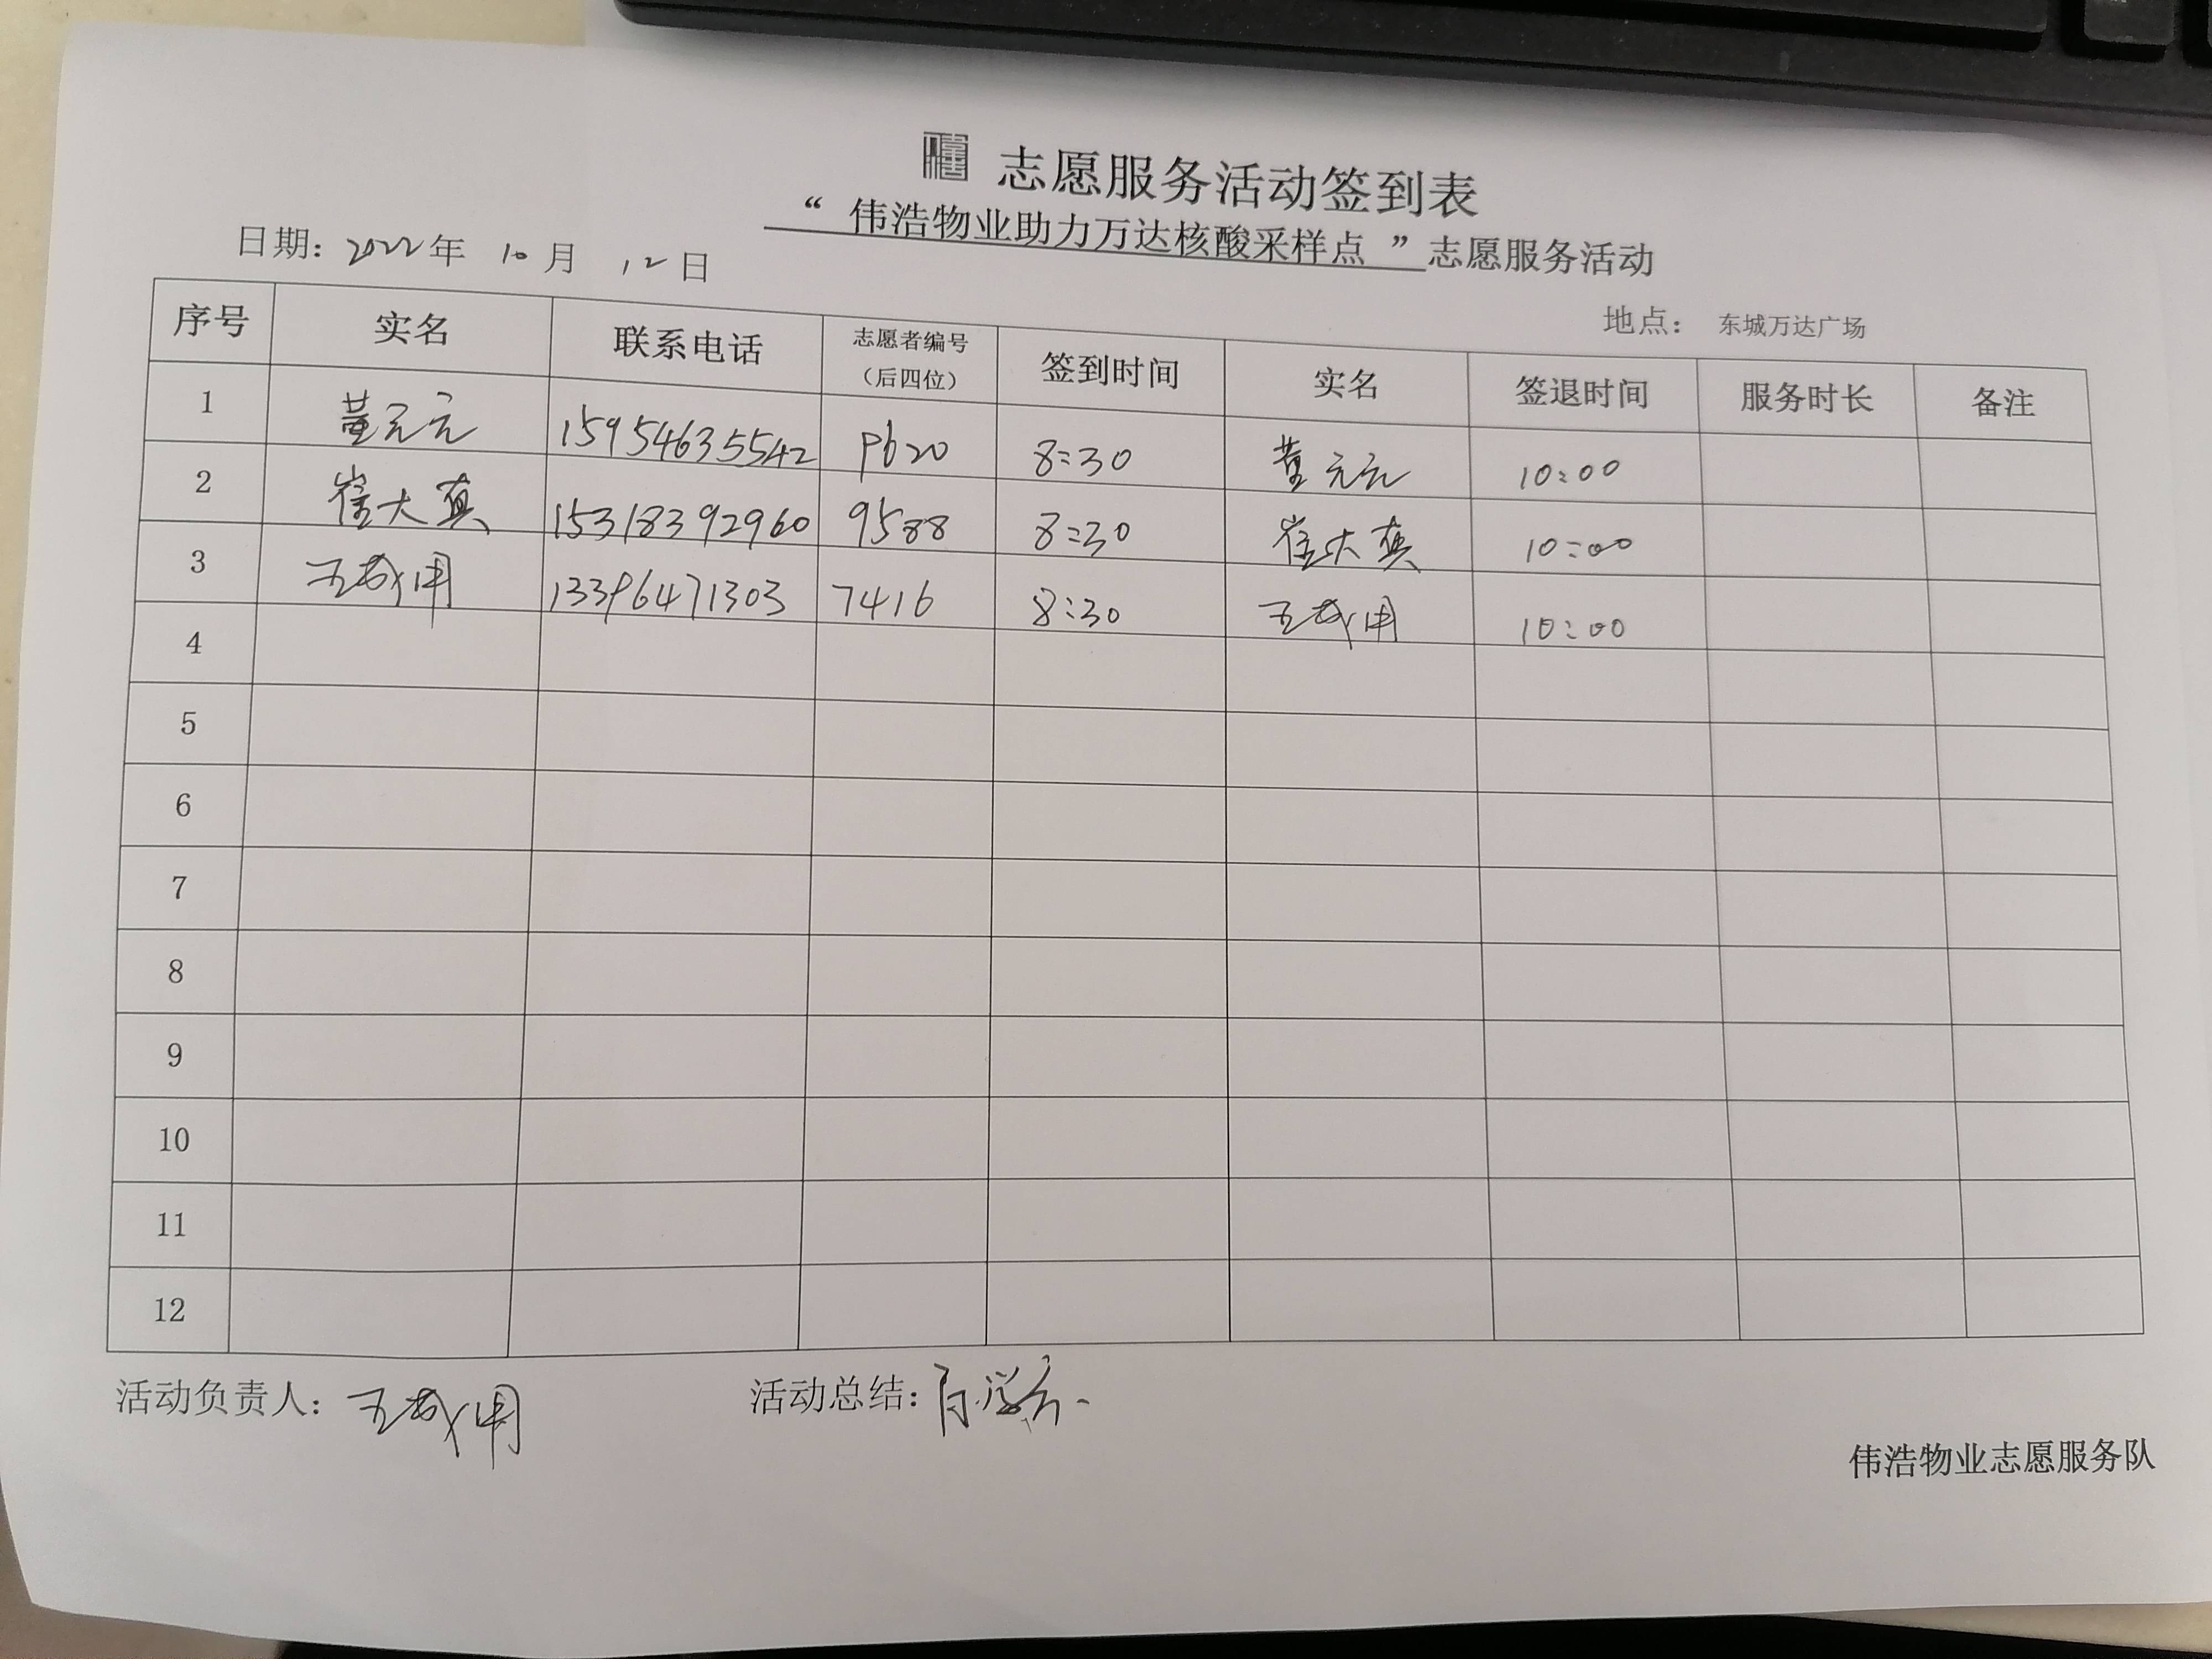 志愿服务活动签到表
“ 伟浩物业助力万达核酸采样点 ”志愿服务活动
日期: 2022年 10月 12日
地点: 东城万达广场
序号 实名 联系电话 志愿者编号（后四位） 签到时间 实名 签退时间 服务时长 备注
1 董元元 15954635542 P620 8:30 董元元 10:00
2 崔大真 15318392960 9588 8:30 崔大真 10:00
3 王 13396471303 7416 8:30 王 10:00
4
5
6
7
8
9
10
11
12
活动负责人: 王
活动总结:
伟浩物业志愿服务队